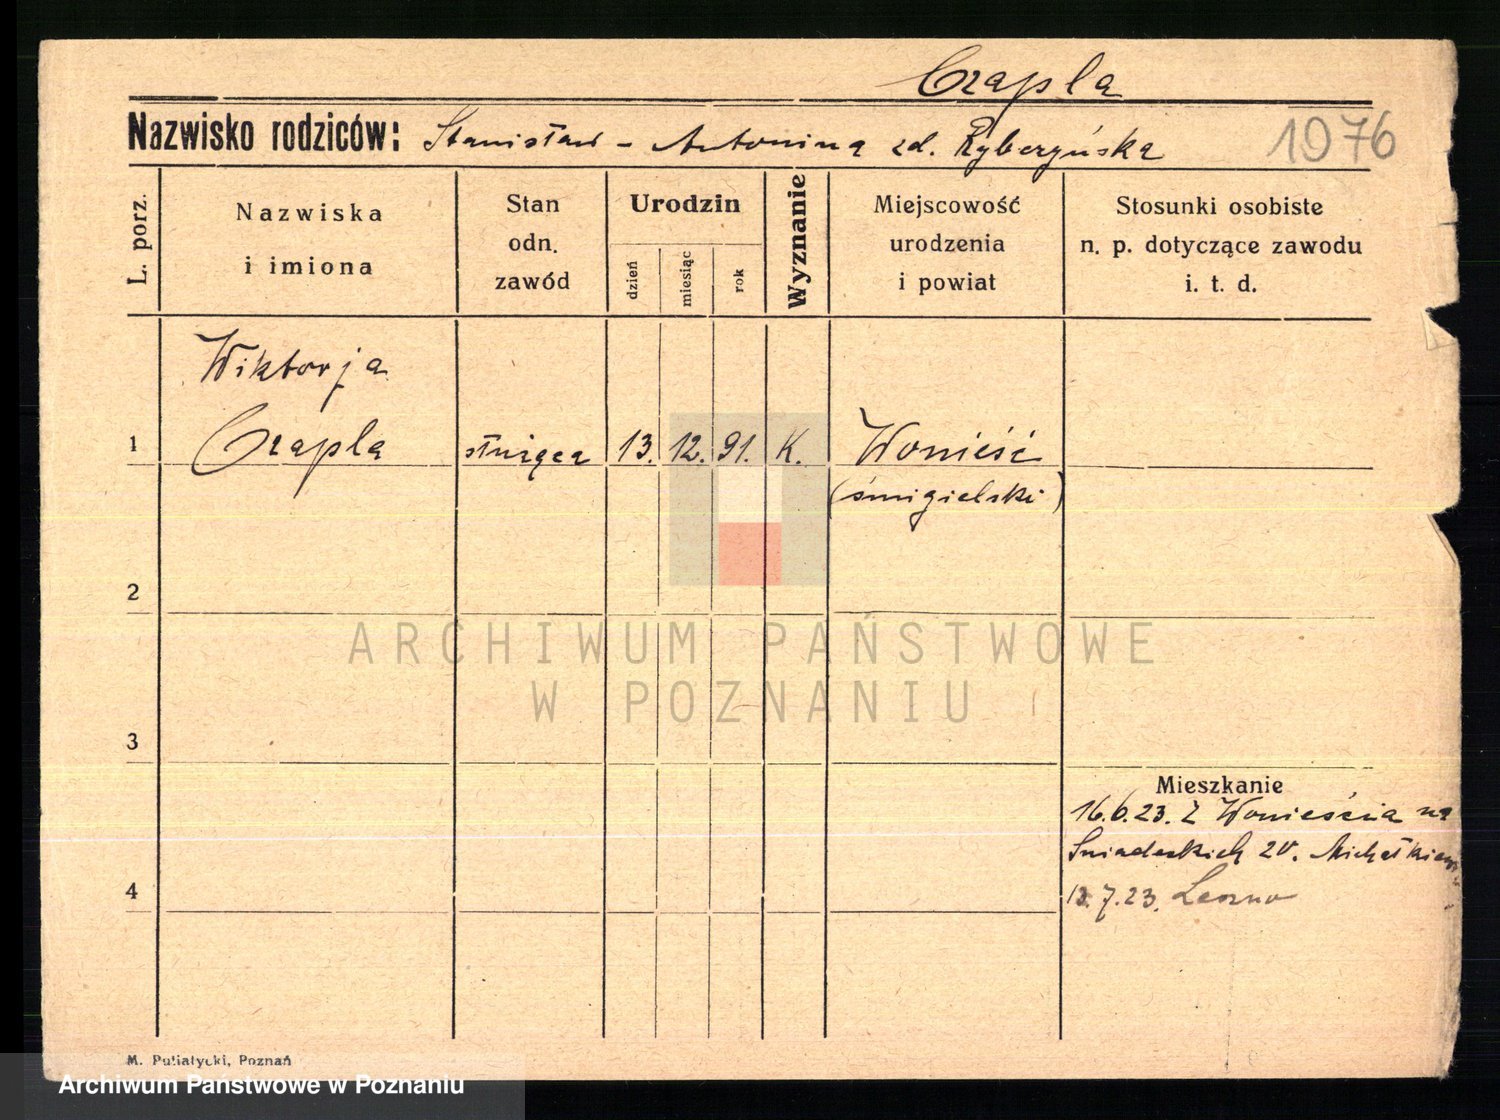 Czapla
Nazwisko rodziców: Stanisław - Antonina zd. Ryberzyńska 1976
L. porz.
Nazwiska
i imiona
Stan
odn.
zawód
Urodzin
dzień
miesiąc
rok
Wyznanie
Miejscowość
urodzenia
i powiat
Stosunki osobiste
n. p. dotyczące zawodu
i. t. d.
Wiktorja
1 Czapla służąca 13. 12. 91. K. Wonieść
(śmigielski)
2
ARCHIWUM PAŃSTWOWE
W POZNANIU
3
Mieszkanie
16.6.23. Z Wonieścia na
Śniadeckich 20.
4
13.7.23. Leszno
M. Putiatycki, Poznań
Archiwum Państwowe w Poznaniu